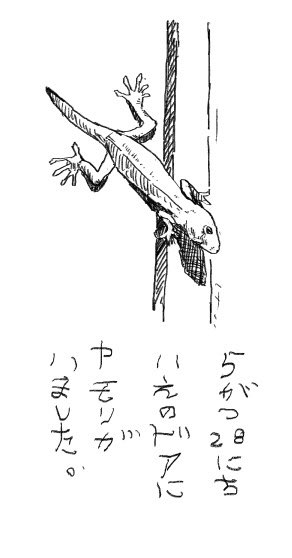 5がつ28にち
いえのドアに
ヤモリが
いました。